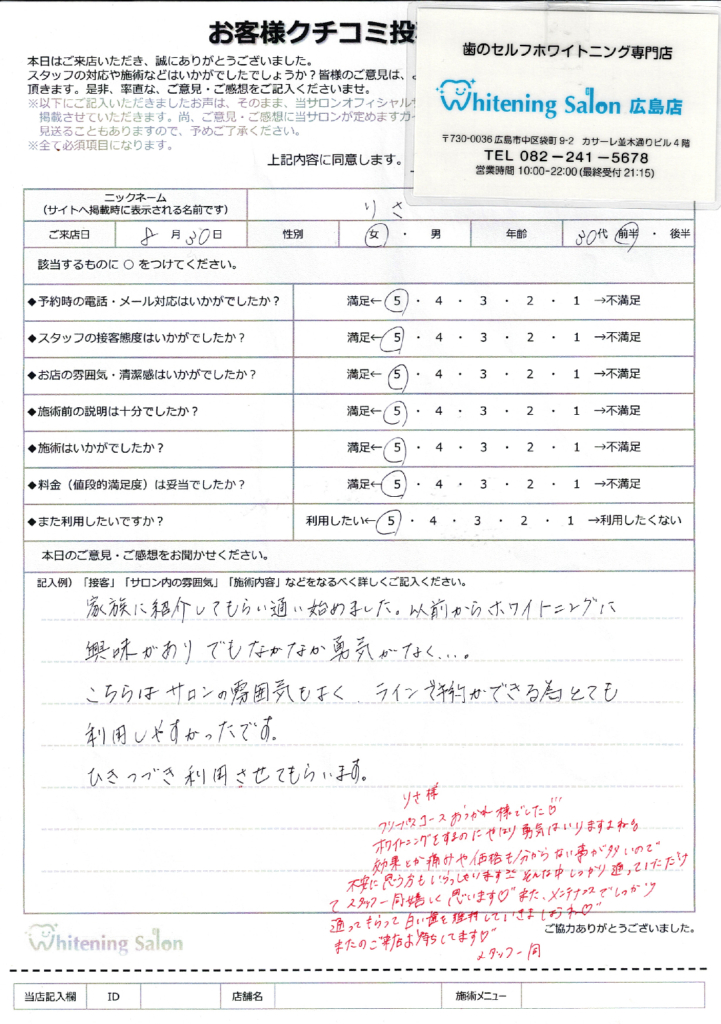 お客様クチコミ投
本日はご来店いただき、誠にありがとうございました。
スタッフの対応や施術などはいかがでしたでしょうか？皆様のご意見は、
頂きます。是非、率直な、ご意見・ご感想をご記入くださいませ。
※以下にご記入いただきましたお声は、そのまま、当サロンオフィシャルサ
掲載させていただきます。尚、ご意見・ご感想に当サロンが定めますガイ
見送ることもありますので、予めご了承ください。
※全て必須項目になります。
上記内容に同意します。
歯のセルフホワイトニング専門店
Whitening Salon 広島店
〒730-0036 広島市中区袋町 9-2 カサーレ並木通りビル 4 階
TEL 082-241-5678
営業時間 10:00-22:00 (最終受付 21:15)
ニックネーム
(サイトへ掲載時に表示される名前です) りさ
ご来店日 8月30日 性別 女・男 年齢 30代 前半・後半
該当するものに ○ をつけてください。
◆予約時の電話・メール対応はいかがでしたか？ 満足← 5・4・3・2・1 →不満足
◆スタッフの接客態度はいかがでしたか？ 満足← 5・4・3・2・1 →不満足
◆お店の雰囲気・清潔感はいかがでしたか？ 満足← 5・4・3・2・1 →不満足
◆施術前の説明は十分でしたか？ 満足← 5・4・3・2・1 →不満足
◆施術はいかがでしたか？ 満足← 5・4・3・2・1 →不満足
◆料金（値段的満足度）は妥当でしたか？ 満足← 5・4・3・2・1 →不満足
◆また利用したいですか？ 利用したい← 5・4・3・2・1 →利用したくない
本日のご意見・ご感想をお聞かせください。
記入例）「接客」「サロン内の雰囲気」「施術内容」などをなるべく詳しくご記入ください。
家族に紹介してもらい通い始めました。以前からホワイトニングに
興味がありでもなかなか勇気がなく…。
こちらはサロンの雰囲気もよく ライン予約ができる為とても
利用しやすかったです。
ひきつづき利用させてもらいます。
りさ様
フリーパスコースおつかれ様でした
ホワイトニングをするのにやはり勇気はいりますよね
効果とか痛みや価格も分からない事が多いので
不安に思う方もいらっしゃいます そんな中しっかり通っていただけ
てスタッフ一同嬉しく思います♡また、メンテナンスでしっかり
通ってもらって白い歯を維持していきましょうね♡
またのご来店お待ちしてます♡
スタッフ一同
ご協力ありがとうございました。
Whitening Salon
当店記入欄 ID 店舗名 施術メニュー